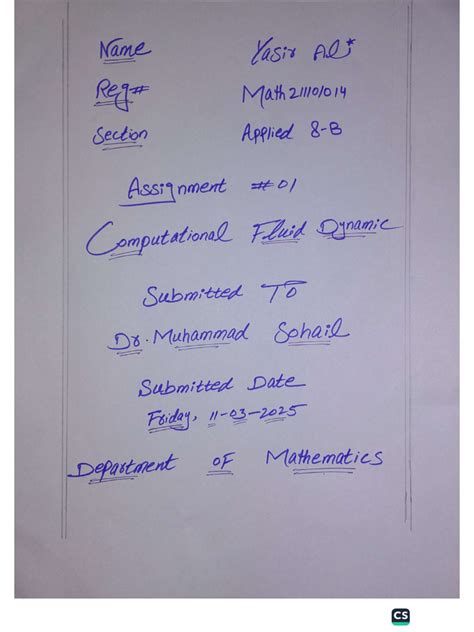 Name Yasir Ali
Reg# Math211101014
Section Applied 8-B
Assignment #01
Computational Fluid Dynamic
Submitted To
Dr. Muhammad Sohail
Submitted Date
Friday, 11-03-2025
Department of Mathematics
CS